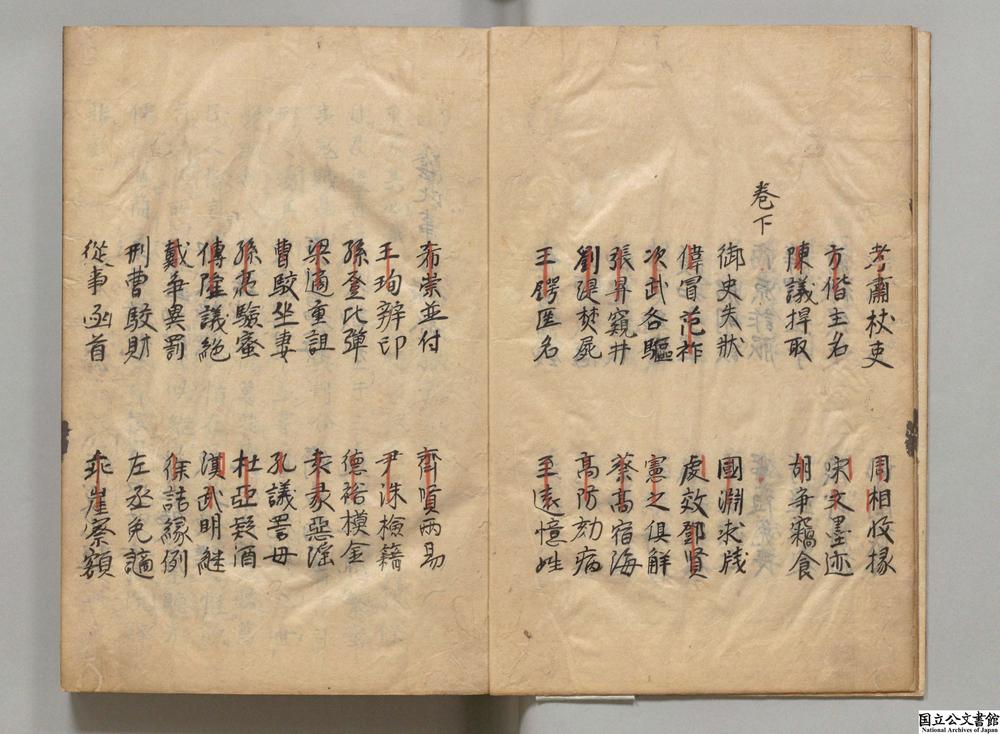 考肅杖吏 周相收掾
方偕主名 宋文墨迹
陳議捍取 胡爭竊食
卷下
御史失狀 國淵求牋
偉冒范祚 處效鄧賢
次武各驅 憲之俱解
張昇窺井 蔡高宿海
劉湜焚屍 高防劾病
王鍔匿名 至遠憶姓
希崇並付 齊賢兩易
王珣辨印 尹洙檢籍
孫登比彈 德裕模金
梁適重詛 袁彖惡淫
曹駁坐妻 孔議罵母
孫亮驗蜜 杜亞疑酒
傅隆議絕 漢武明継
戴爭異罰 徐詰緣例
刑曹駁財 左丞免讁
從事函首 乖崖察額
国立公文書館
National Archives of Japan